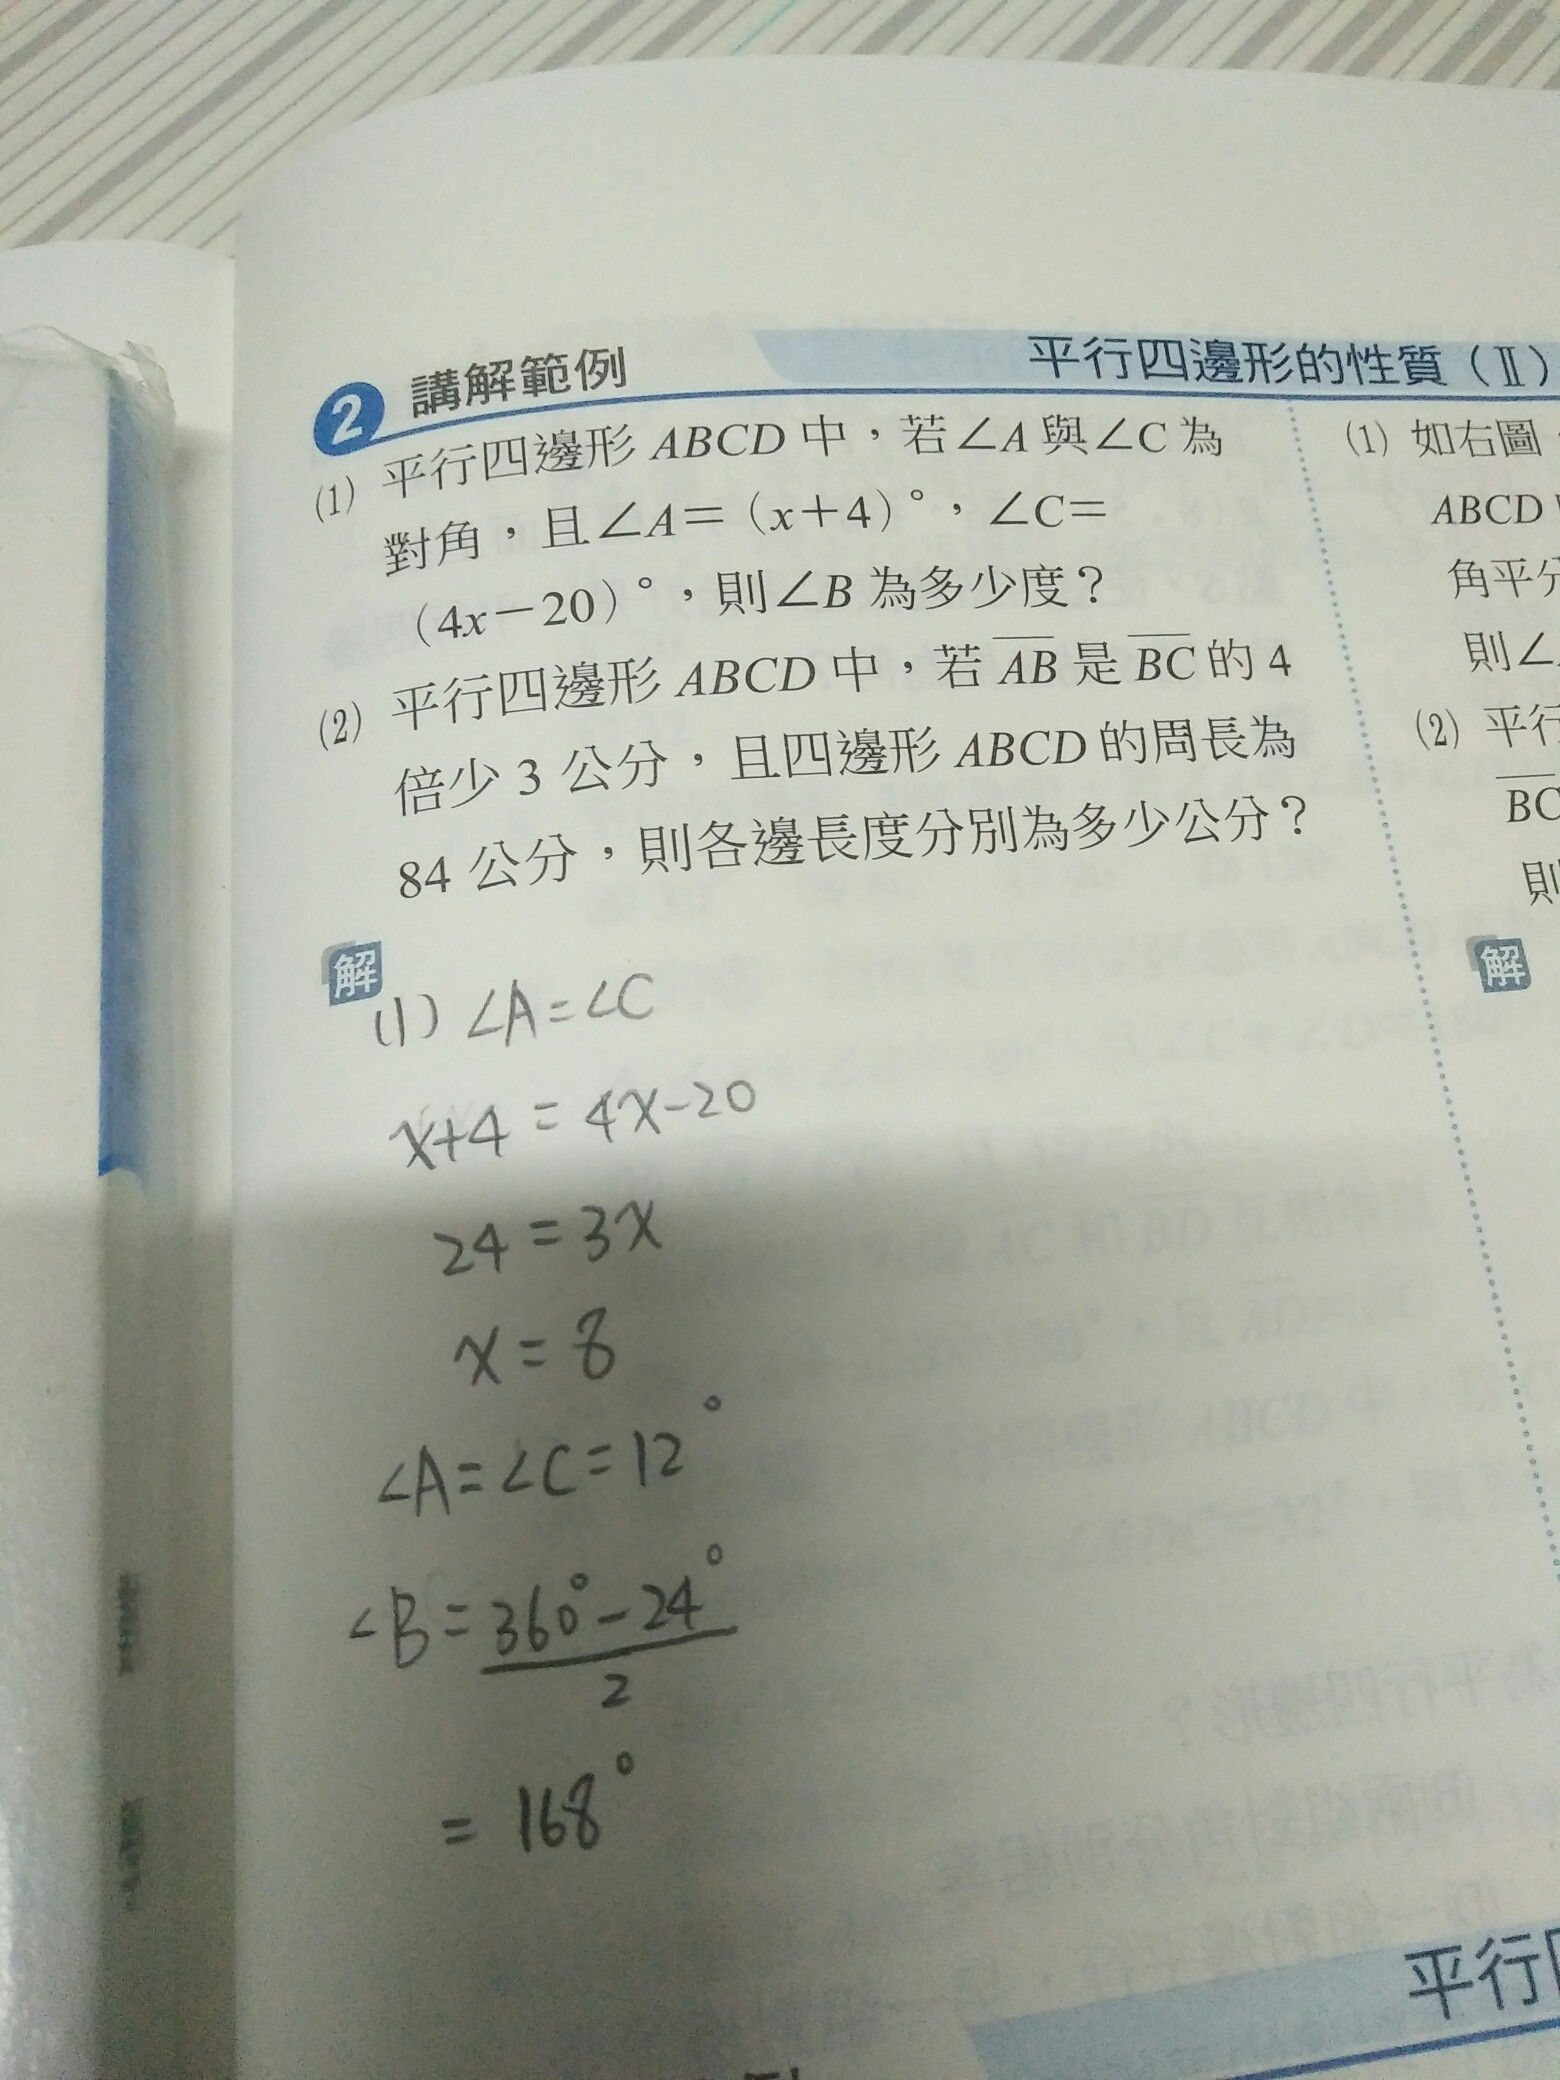 2 講解範例
平行四邊形的性質（Ⅱ）
(1) 平行四邊形 ABCD 中，若∠A 與∠C 為
對角，且∠A＝（x＋4）°，∠C＝
（4x－20）°，則∠B 為多少度？
(2) 平行四邊形 ABCD 中，若 AB 是 BC 的 4
倍少 3 公分，且四邊形 ABCD 的周長為
84 公分，則各邊長度分別為多少公分？
解
(1) ∠A=∠C
x+4 = 4x-20
24 = 3x
x = 8
∠A=∠C=12°
∠B = 360°-24°
2
= 168°
(1) 如右圖
ABCD
角平分
則∠
(2) 平行
BC
則
解
平行